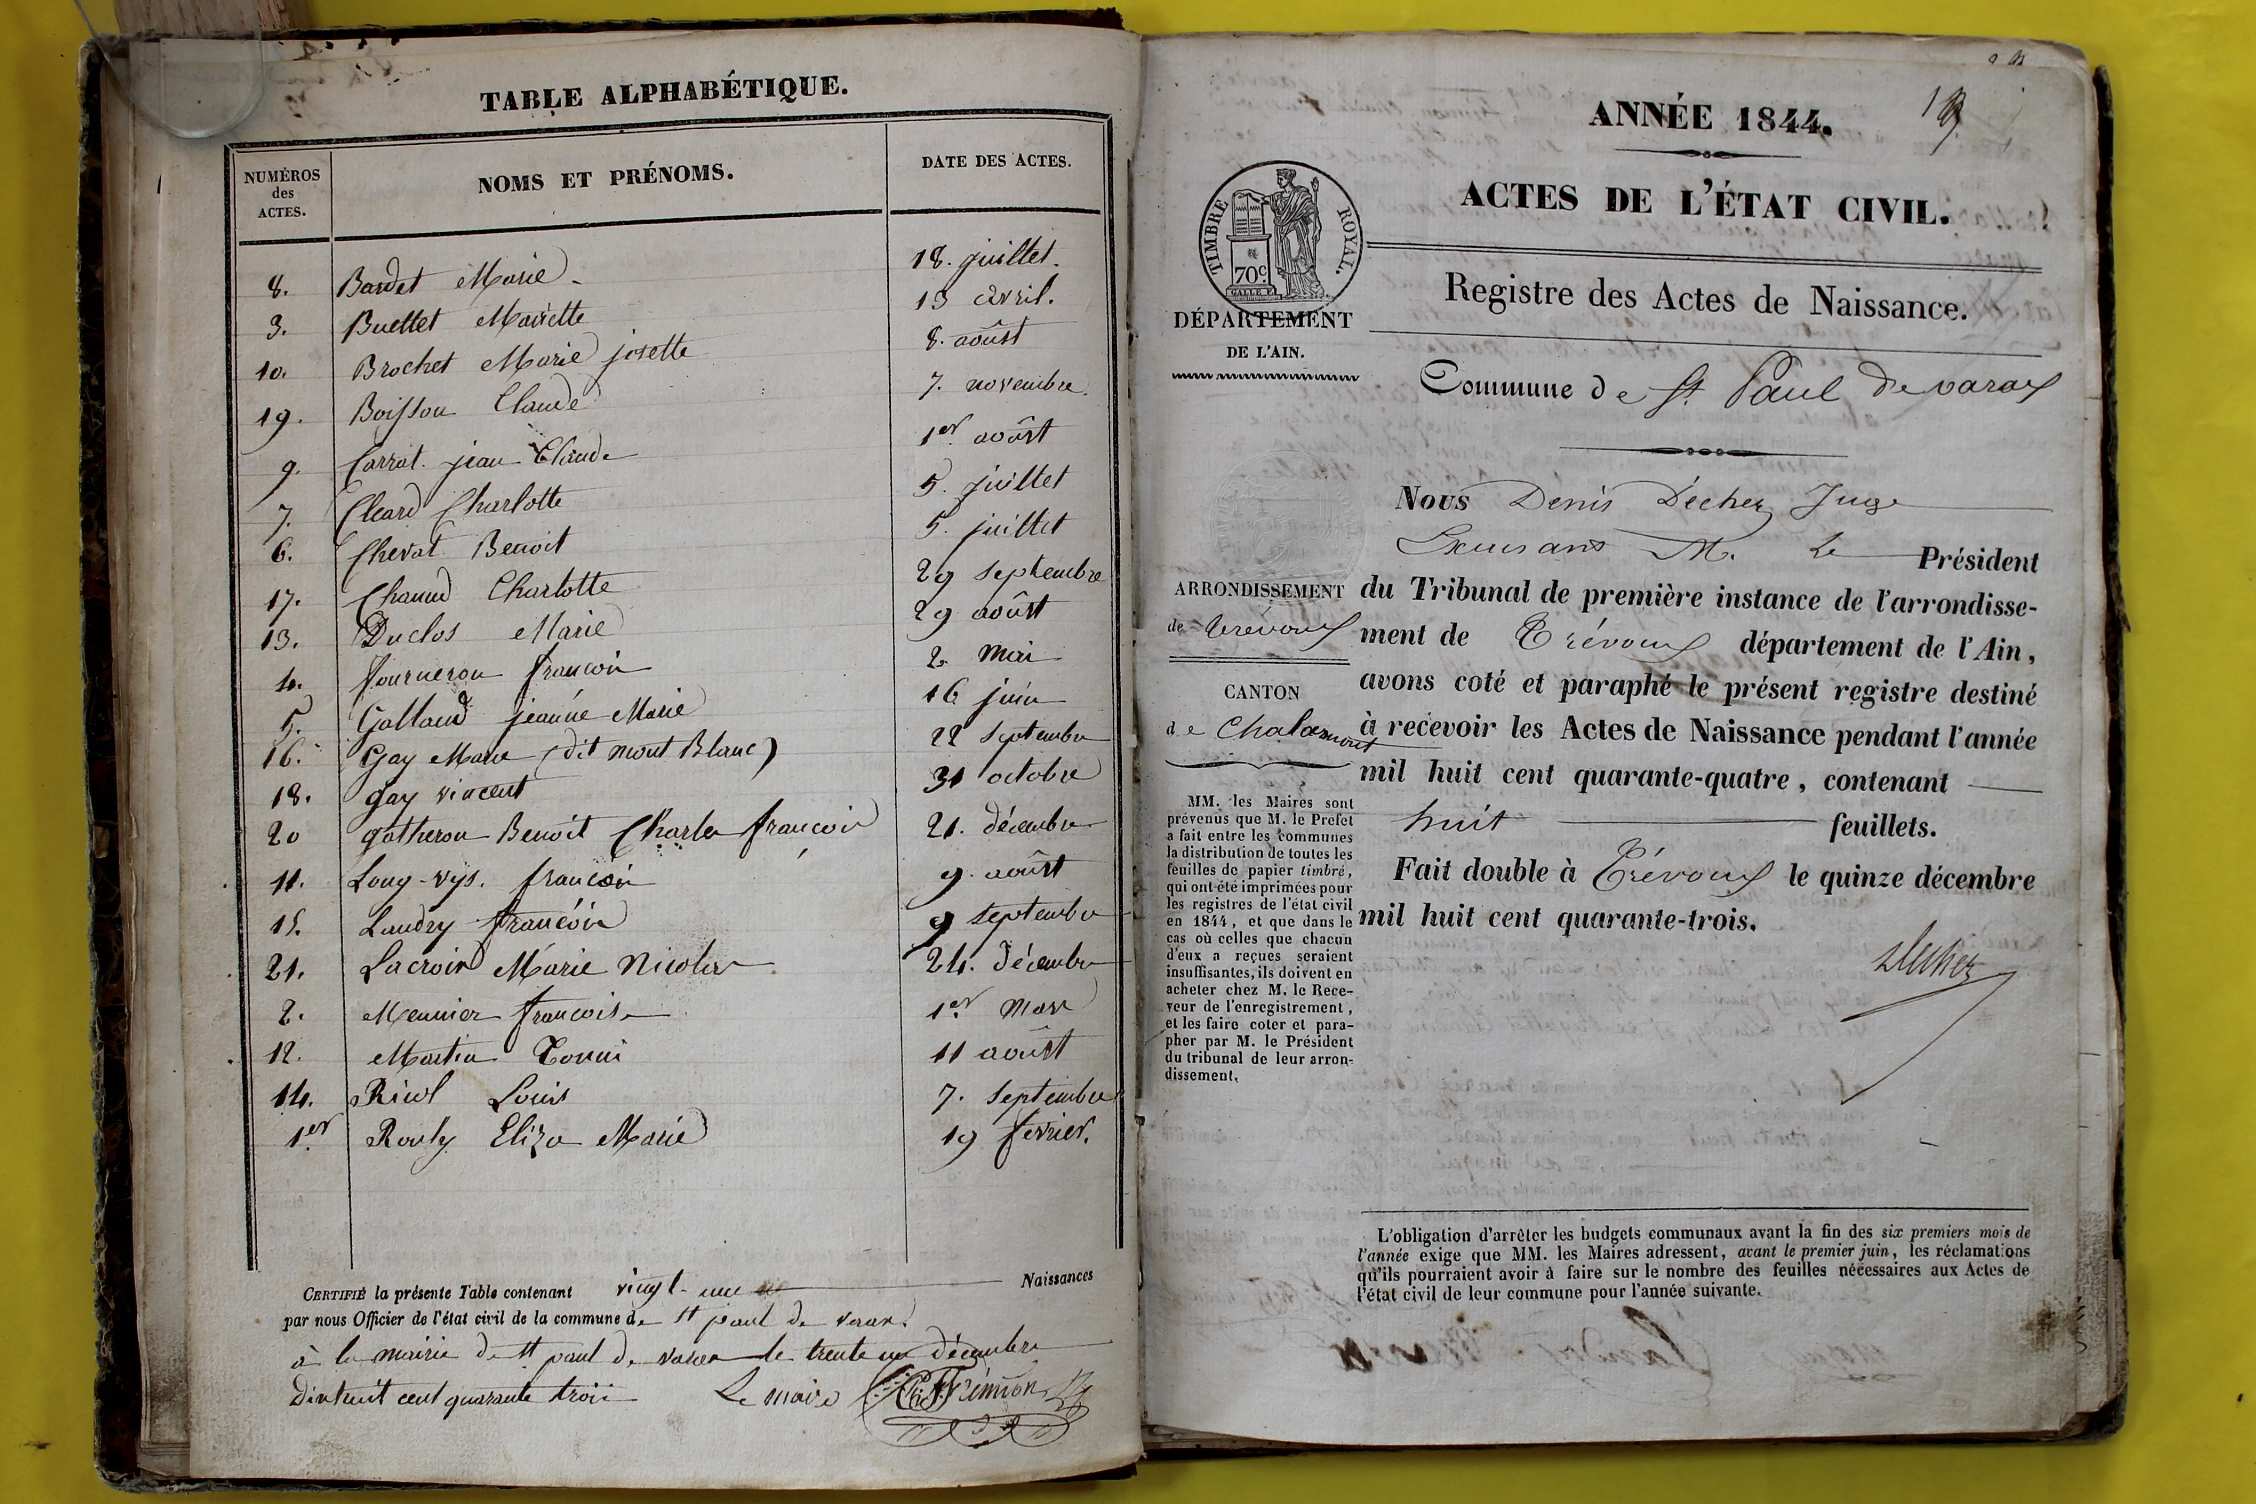 TABLE ALPHABÉTIQUE.
NUMÉROS des ACTES. NOMS ET PRÉNOMS. DATE DES ACTES.
8. Bardet Marie 18. juillet.
3. Buettet Mariette 13 avril.
10. Brochet Marie josette 8. aoûst
19. Boisson Claude 7. novembre
9. Carrat. jean Claude 1er aoûst
7. Cleard Charlotte 5. juillet
6. Chevat Benoit 5. juillet
17. Chanud Charlotte 29 Septembre
13. Duclos Marie 29 aoûst
4. fourneron françois 2. Mai
5. Galland jeanne Marie 16 juin
16. Gay Marie (dit mont Blanc) 22 Septembre
18. gay vincent 31 octobre
20 gatheron Benoit Charles françois 21. décembre
11. Long-vys. françois 9. aoûst
15. Landry françois 9 Septembre
21. Lacroix Marie Nicolas 24. décembre
2. Meunier françoise 1er Mars
12. Martin Tonni 11 aoûst
14. Riol Louis 7. Septembre
1er Rouly Eliza Marie 19 fevrier.
CERTIFIÉ la présente Table contenant vingt-une Naissances
par nous Officier de l'état civil de la commune de St paul de varax.
à la mairie de St paul de varax le trente un décembre
Dixhuit cent quarante trois Le maire Frémion
ANNÉE 1844.
ACTES DE L'ÉTAT CIVIL.
TIMBRE ROYAL.
70c
GALLE F.
Registre des Actes de Naissance.
DÉPARTEMENT
DE L'AIN.
Commune de St Paul de varax
Nous Denis Décher Juge
M. Le Président
du Tribunal de première instance de l'arrondisse-
ment de Trévoux département de l'Ain,
avons coté et paraphé le présent registre destiné
à recevoir les Actes de Naissance pendant l'année
mil huit cent quarante-quatre, contenant
huit feuillets.
Fait double à Trévoux le quinze décembre
mil huit cent quarante-trois.
Decher
ARRONDISSEMENT
de Trévoux
CANTON
de Chalamont
MM. les Maires sont
prévenus que M. le Préfet
a fait entre les communes
la distribution de toutes les
feuilles de papier timbré,
qui ont été imprimées pour
les registres de l'état civil
en 1844, et que dans le
cas où celles que chacun
d'eux a reçues seraient
insuffisantes, ils doivent en
acheter chez M. le Rece-
veur de l'enregistrement,
et les faire coter et para-
pher par M. le Président
du tribunal de leur arron-
dissement.
L'obligation d'arrêter les budgets communaux avant la fin des six premiers mois de
l'année exige que MM. les Maires adressent, avant le premier juin, les réclamations
qu'ils pourraient avoir à faire sur le nombre des feuilles nécessaires aux Actes de
l'état civil de leur commune pour l'année suivante.